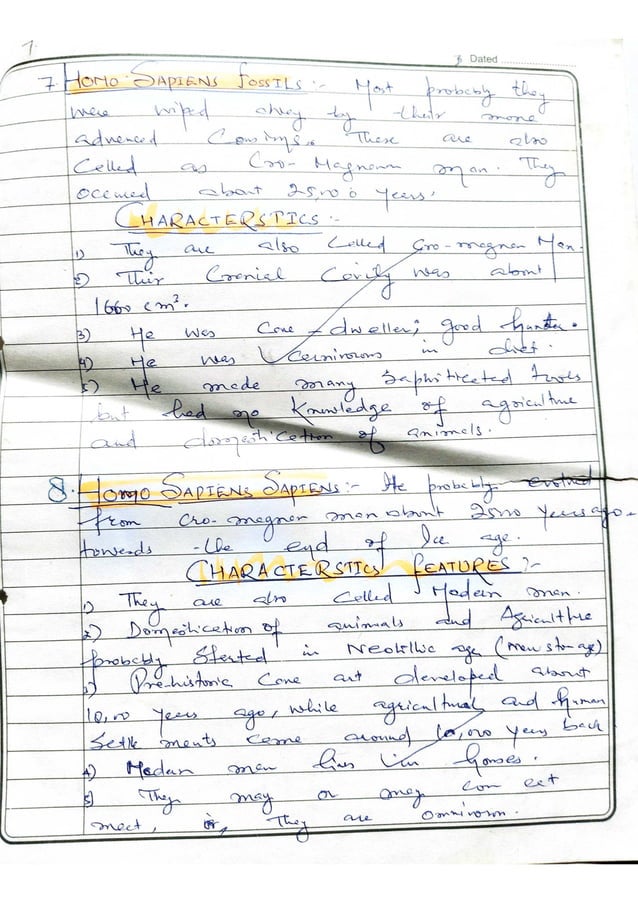 1.
Dated
7. HOMO SAPIENS FOSSILS :- Most probably they
were wiped away by their more
advenced Cousings. These are also
Celled as Cro-Magnum man. They
occured about 25,000 years.
CHARACTERSTICS :-
1) They are also Celled Cro-magnon Man.
2) Their Cranial Cavity was about
1660 cm².
3) He was Cave-dweller; good hunter.
4) He was Cernivorous in diet.
5) He made many Saphiticated tools
but hed no Knowledge of agriculture
and domestication of animals.
8. HOMO SAPIENS SAPIENS :- He probably evolved
from Cro-magnon man about 25000 years ago.
towards the end of Ice age.
CHARACTERSTICS FEATURES :-
1) They are also Celled Modern man.
2) Domestication of animals and Agriculture
probably Sterted in Neolithic age (New stone age)
3) Pre-historic Cave art developed about
10,000 years ago, while agricultural and human
Settlements Came around 10,000 years back
4) Modern man lives in houses.
5) They may or may eat
meet, They are omnivorous.